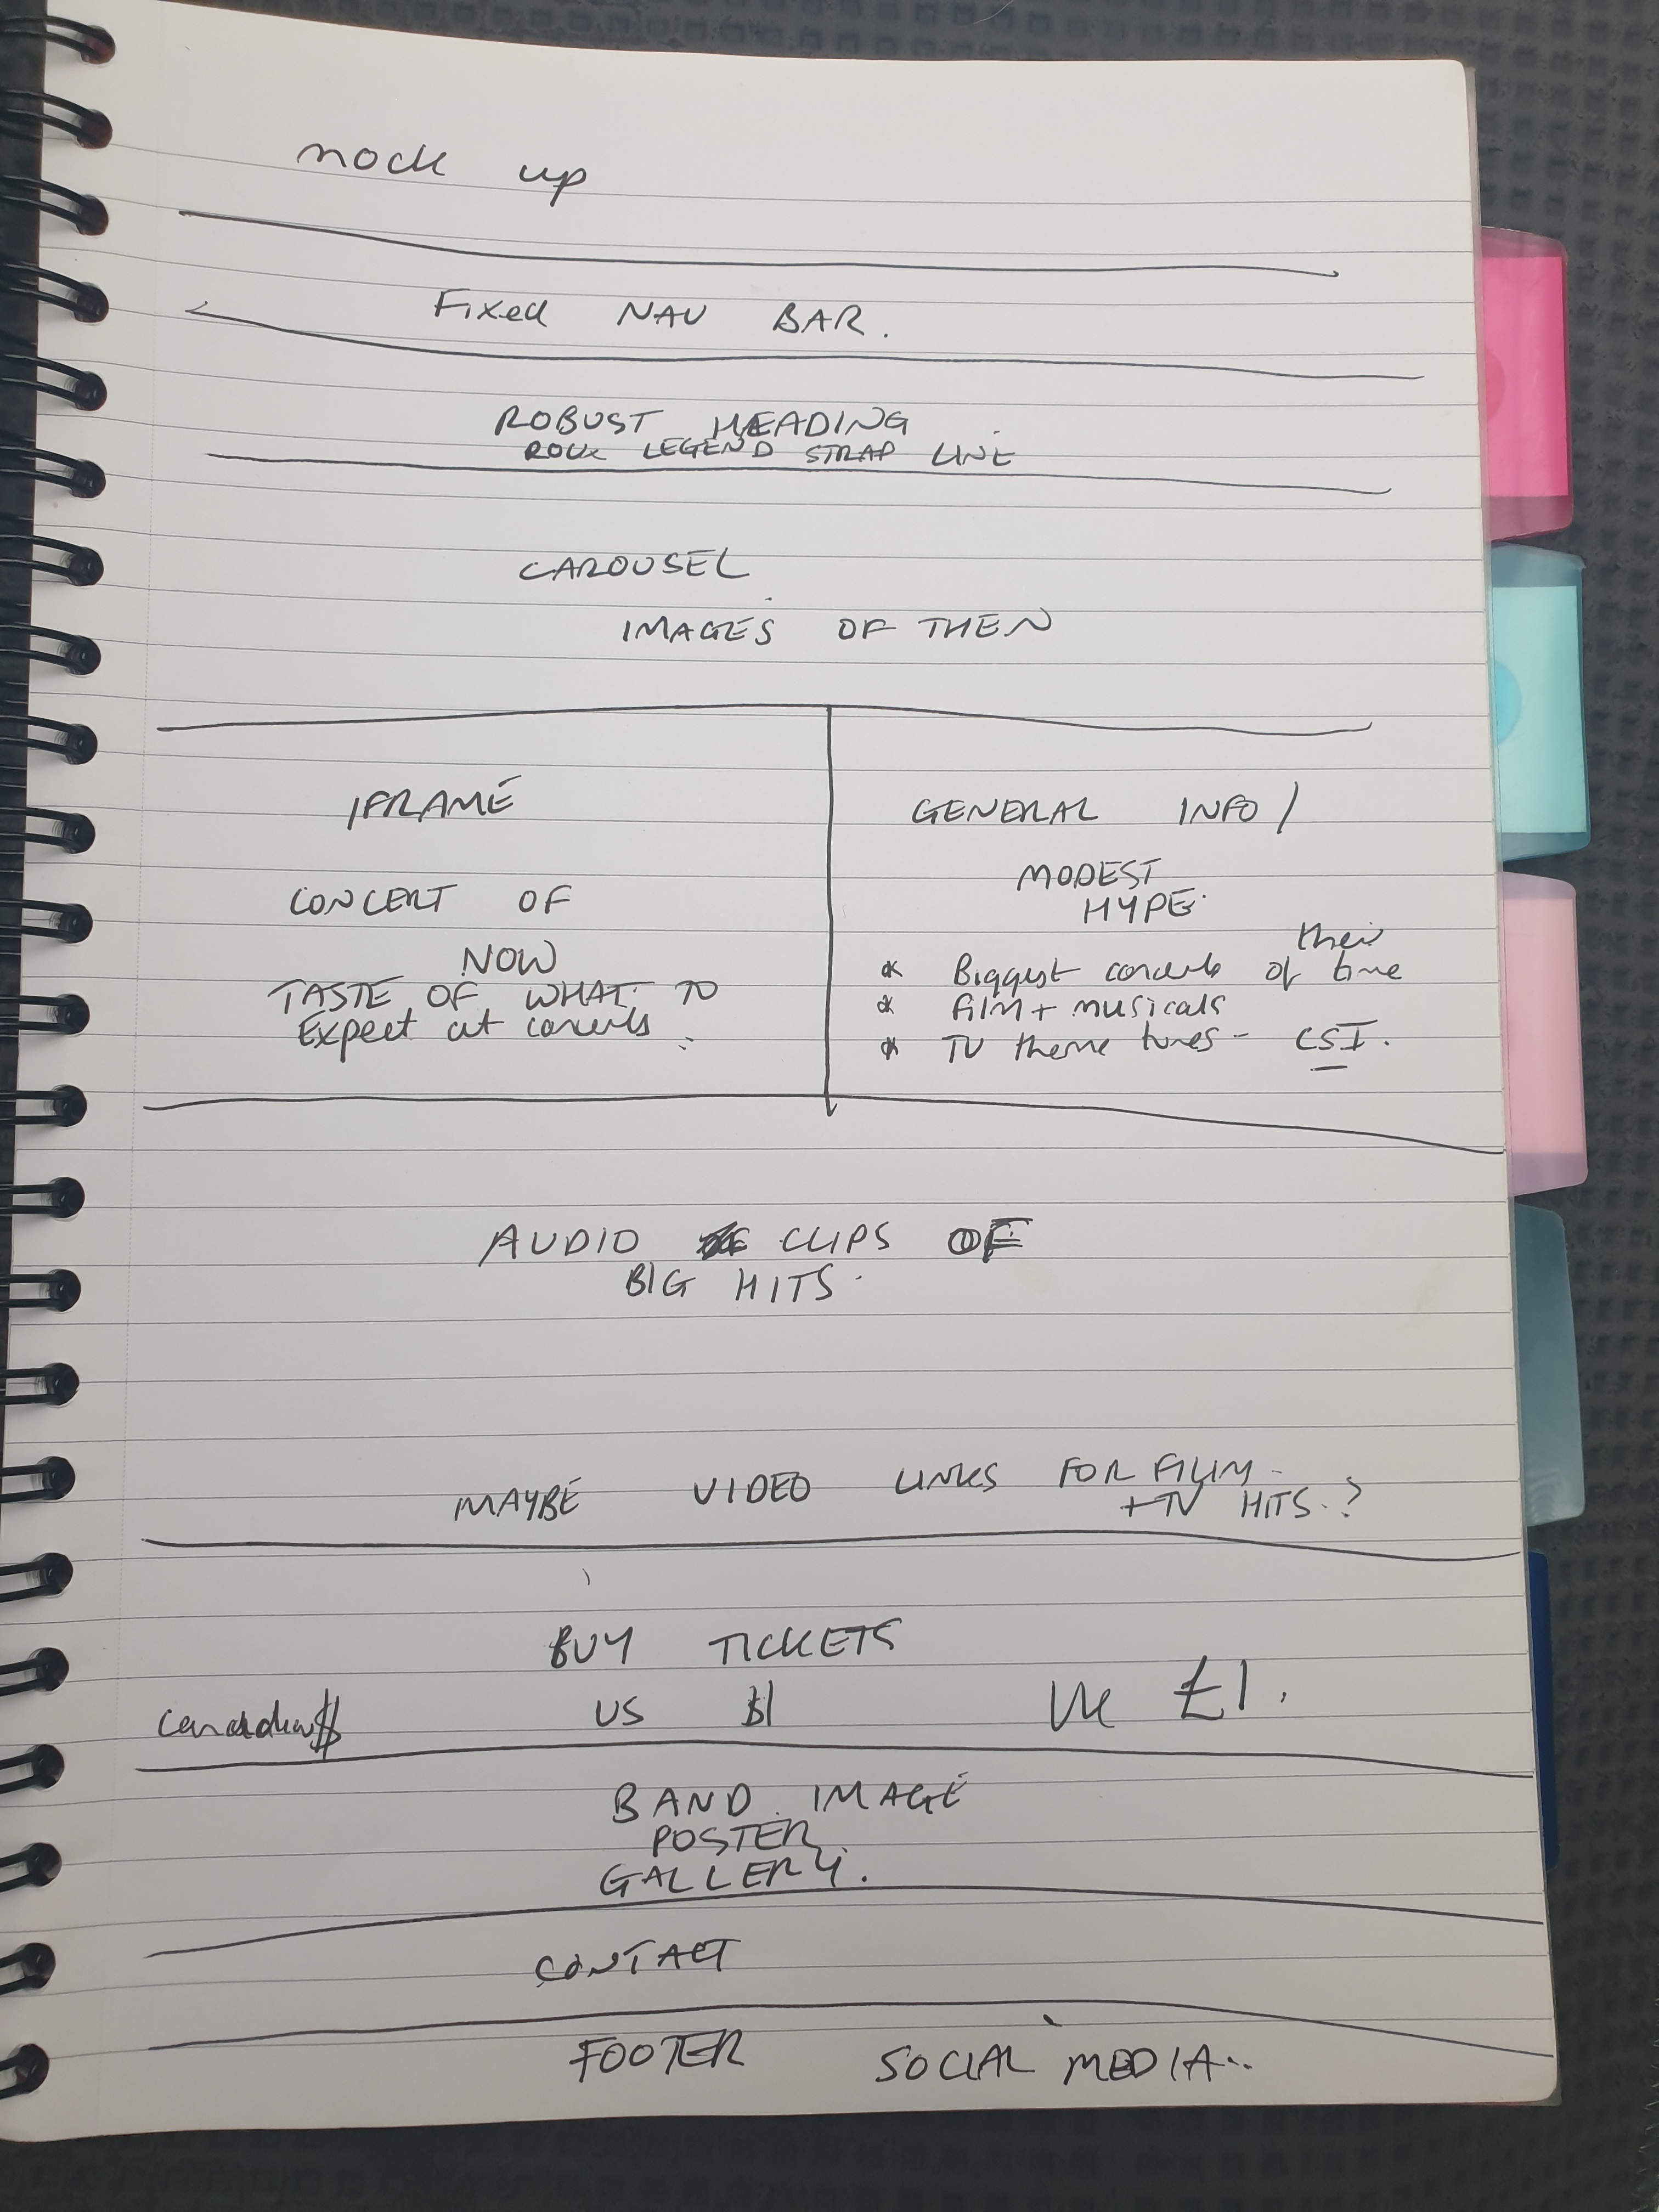 mock up
Fixed NAV BAR.
ROBUST HEADING
ROCK LEGEND STRAP LINE
CAROUSEL
IMAGES OF THEN
IFRAME
CONCERT OF
NOW
TASTE OF WHAT TO
Expect at concerts
GENERAL INFO /
MODEST
HYPE.
their
* Biggest concerts of time
* film + musicals
* TV theme tunes - CSI.
AUDIO CLIPS OF
BIG HITS.
MAYBE VIDEO LINKS FOR FILM
+ TV HITS.?
BUY TICKETS
Canadian $ US $1 UK £1.
BAND IMAGE
POSTER
GALLERY.
CONTACT
FOOTER SOCIAL MEDIA..